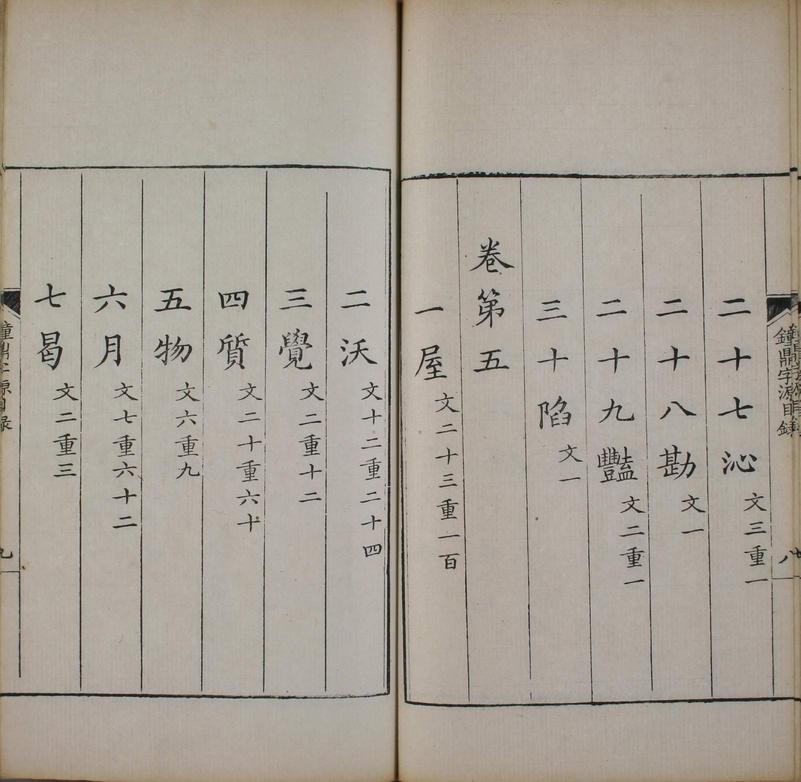 鐘鼎字源目錄
八
二十七沁文三重一
二十八勘文一
二十九豔文二重一
三十陷文一
卷第五
一屋文二十三重一百
二沃文十二重二十四
三覺文二重十二
四質文二十重六十
五物文六重九
六月文七重六十二
七曷文二重三
鐘鼎字源目錄
九